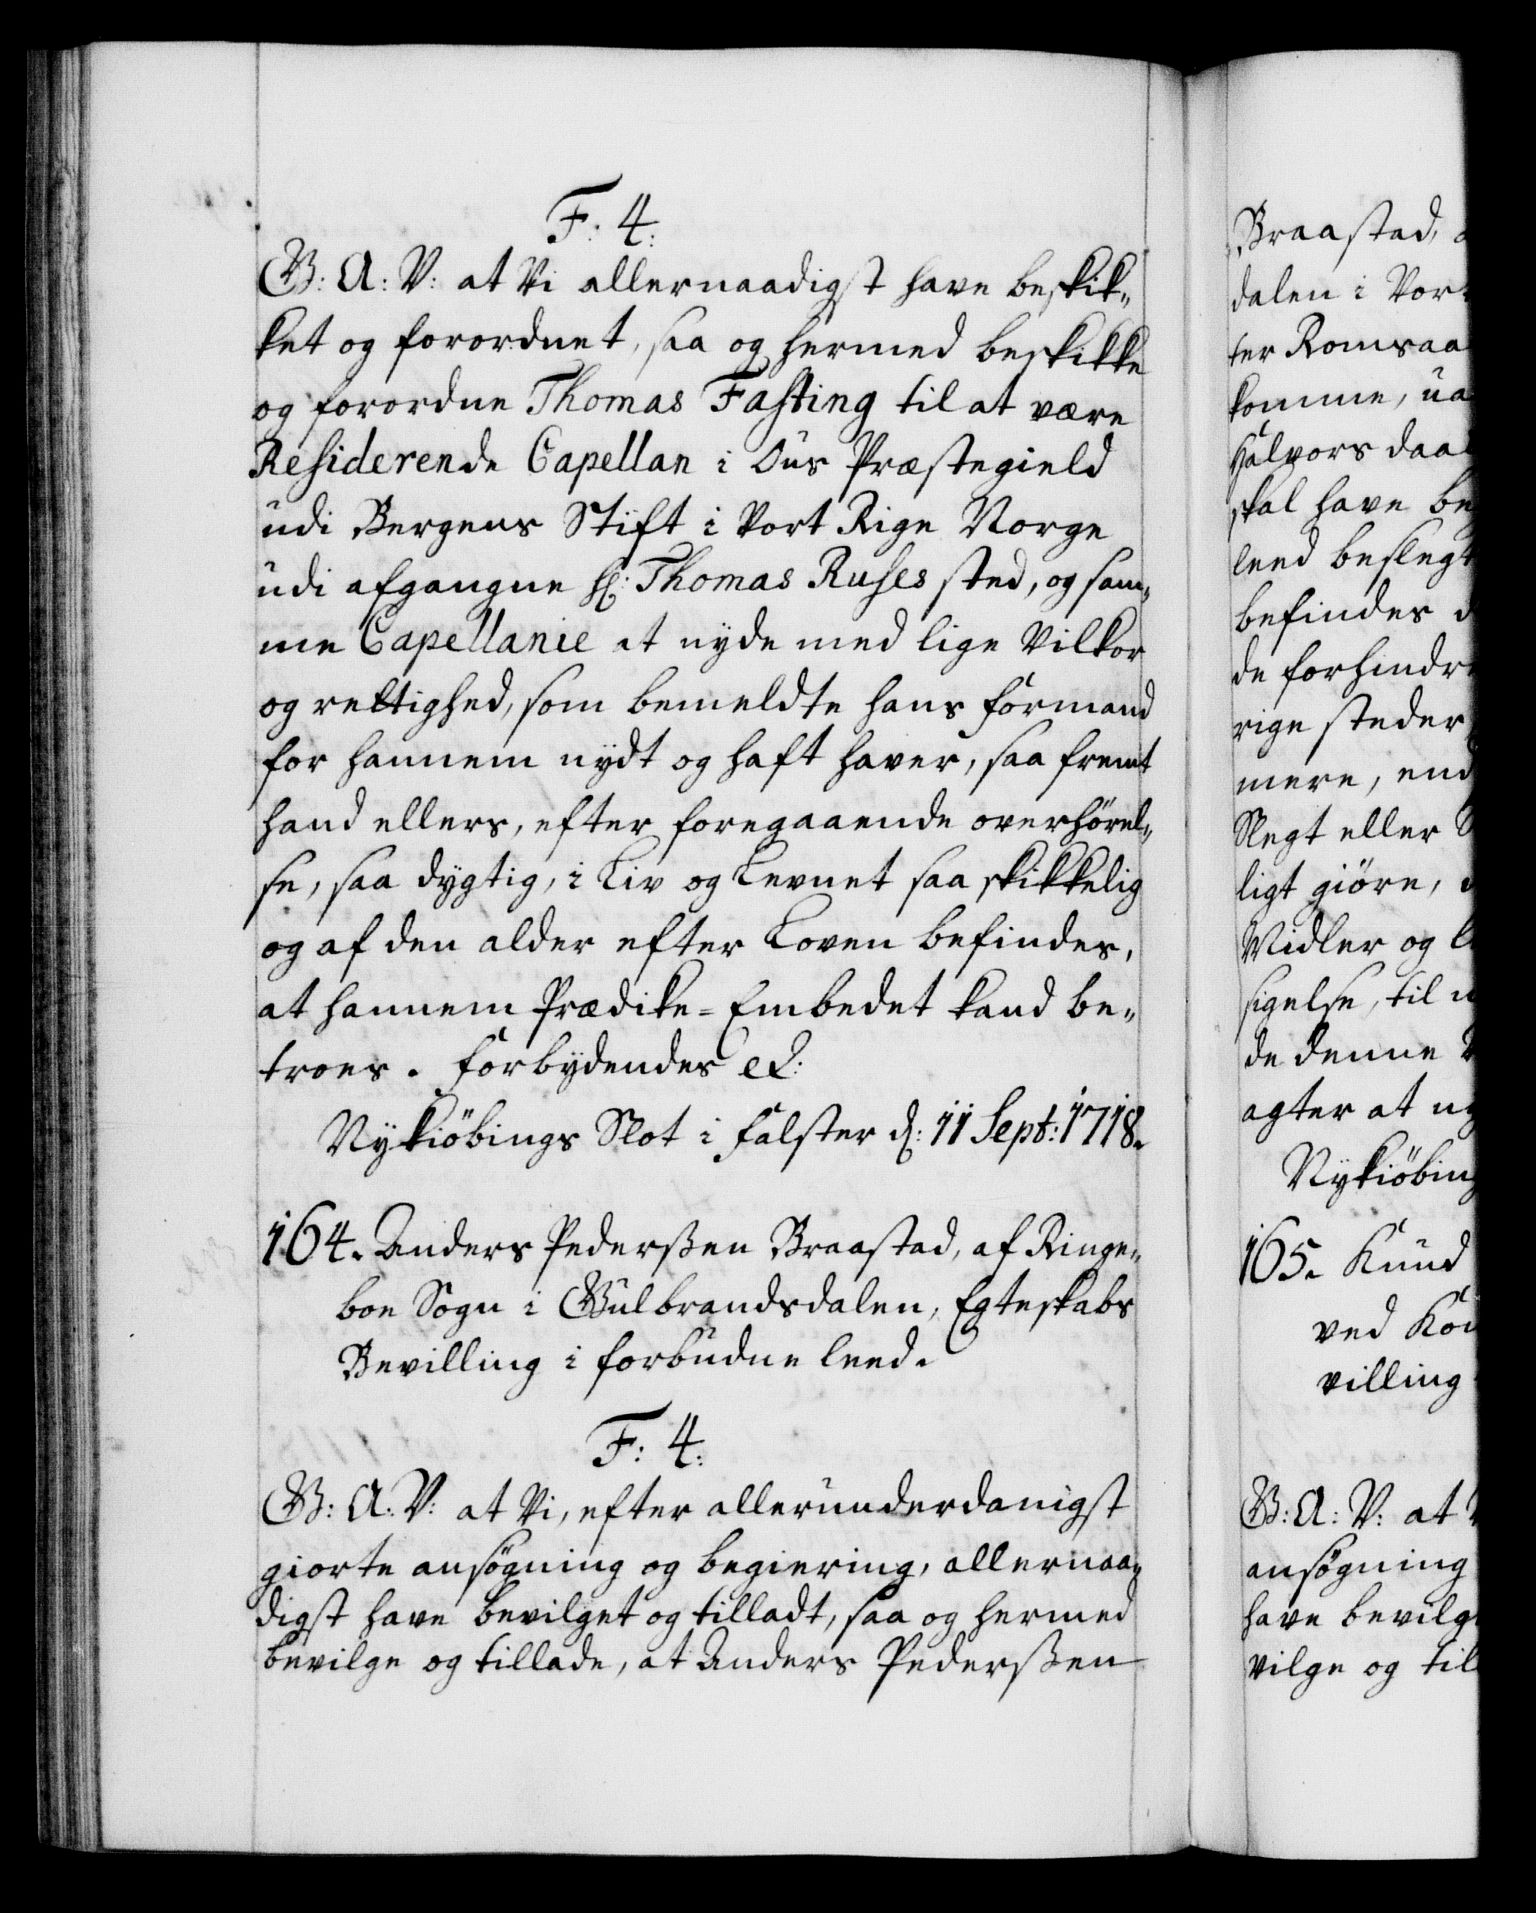 F: 4:
G: A: V: at Vi allernaadigst have beskik„
ket og forordnet, saa og hermed beskikke
og forordne Thomas Fasting til at være
Residerende Capellan i Ous Præstegield
udi Bergens Stift i Vort Rige Norge
udi afgangne H: Thomas Ruses sted, og sam„
me Capellanie at nyde med lige Vilkor
og rettighed, som bemeldte hans formand
for hannem nydt og haft haver, saa fremt
hand ellers, efter foregaaende overhörel„
se, saa dygtig, i Liv og Levnet saa skikkelig
og af den alder efter Loven befindes,
at hannem Prædike-Embedet kand be„
troes. Forbydendes etc:
Nykiöbings Slot i Falster d: 11 Sept: 1718.
164. Anders Pederssen Braastad, af Ringe„
boe Sogn i Gulbrandsdalen, Egteskabs
Bevilling i forbudne leed.
F: 4:
G: A: V: at Vi, efter allerunderdanigst
giorte ansögning og begiering, allernaa„
digst have bevilget og tilladt, saa og hermed
bevilge og tillade, at Anders Pederssen
Braastad,
dalen i Vort
ter Romsaa
komme, ua
Halvors daa
skal have be
leed beslegt
befindes
de forhindr
rige steder
mere, end
Slegt eller
ligt giöre,
Midler og
sigelse, til
de denne
agter at ny
Nykiöbing
165. Knud
ved Kon
villing
G: A: V: at
ansögning
have bevilg
vilge og til